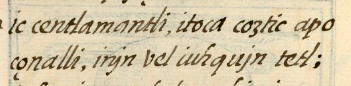 ic centlamantli, itoca coztic apo
çonalli, injn vel iuhqujn tetl;